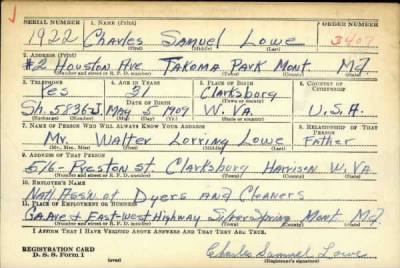 SERIAL NUMBER 1. NAME (Print) ORDER NUMBER
1922 Charles Samuel Lowe 3407
(First) (Middle) (Last)
2. ADDRESS (Print)
#2 Houston Ave. Takoma Park Mont. Md
(Number and street or R. F. D. number) (Town) (County) (State)
3. TELEPHONE 4. AGE IN YEARS 5. PLACE OF BIRTH 6. COUNTRY OF CITIZENSHIP
Yes 31 Clarksburg
(Town or county)
DATE OF BIRTH
Sh. 5836-J. May 5 1909 W. VA. U.S.A.
(Exchange) (Number) (Mo.) (Day) (Yr.) (State or country)
7. NAME OF PERSON WHO WILL ALWAYS KNOW YOUR ADDRESS 8. RELATIONSHIP OF THAT PERSON
Mr. Walter Lorring Lowe Father
(Mr., Mrs., Miss) (First) (Middle) (Last)
9. ADDRESS OF THAT PERSON
516- Preston St. Clarksburg Harrison W. VA.
(Number and street or R. F. D. number) (Town) (County) (State)
10. EMPLOYER'S NAME
Natl. Ass'n of Dyers and Cleaners
11. PLACE OF EMPLOYMENT OR BUSINESS
Ga. Ave at East-West Highway Silver Spring Mont. Md
(Number and street or R. F. D. number) (Town) (County) (State)
I AFFIRM THAT I HAVE VERIFIED ABOVE ANSWERS AND THAT THEY ARE TRUE.
REGISTRATION CARD
D. S. S. Form 1 (over) Charles Samuel Lowe
(Registrant's signature)